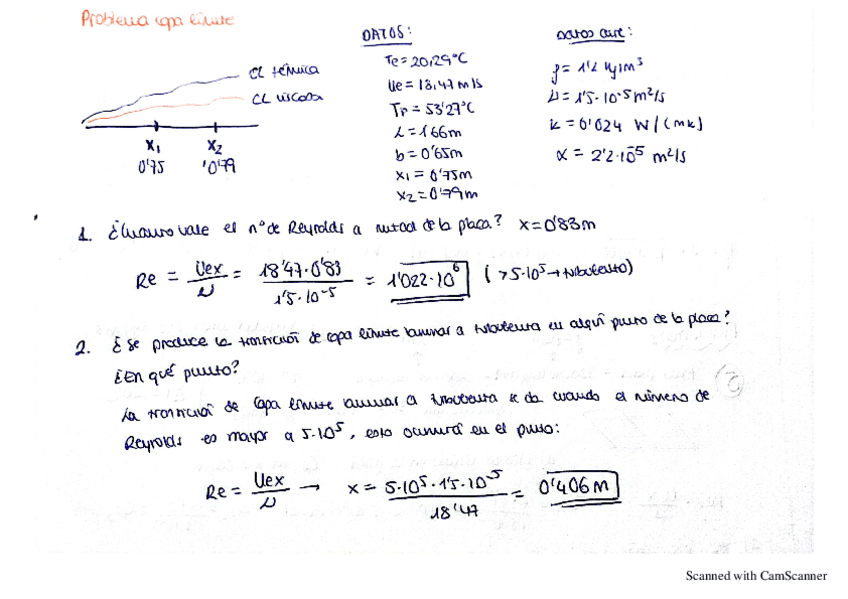 Problema capa límite
CL térmica
CL viscosa
X1
0'75
X2
0'79
DATOS:
Te = 20,29°C
Ue = 18,47 m/s
Tp = 53'27°C
L = 1'66m
b = 0'65m
x1 = 0'75m
x2 = 0'79m
DATOS aire:
ρ = 1'2 kg/m³
ν = 1'5·10⁻⁵ m²/s
k = 0'024 W/(mk)
α = 2'2·10⁻⁵ m²/s
1. ¿Cuánto vale el nº de Reynolds a mitad de la placa? x = 0'83m
Re = Uex/ν = 18'47·0'83/1'5·10⁻⁵ = 1'022·10⁶ (>5·10⁵→turbulento)
2. ¿Se produce la transición de capa límite laminar a turbulenta en algún punto de la placa?
¿En qué punto?
La transición de capa límite laminar a turbulenta se da cuando el número de
Reynolds es mayor a 5·10⁵, esto ocurrirá en el punto:
Re = Uex/ν → x = 5·10⁵·1'5·10⁻⁵/18'47 = 0'406m
Scanned with CamScanner